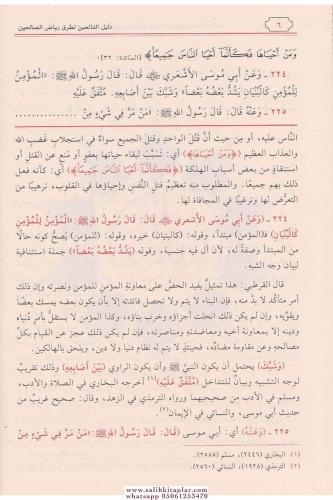 ٦
دليل الفالحين لطرق رياض الصالحين
وَمَنْ أَحْيَاهَا فَكَأَنَّمَا أَحْيَا النَّاسَ جَمِيعاً﴾ [المائدة: ٣٢].
٢٢٤ ـ وَعَنْ أَبي مُوسَى الأَشْعري ﷺ قَالَ: قَالَ رَسُولُ اللهِ ﷺ: «الْمُؤْمِنُ
لِلْمُؤْمِنِ كَالْبُنْيَانِ يَشُدُّ بَعْضُهُ بَعْضاً» وَشَبَّكَ بَيْنَ أَصَابِعِهِ. مُتَّفَقٌ عَلَيْهِ
٢٢٥ ـ وَعَنْهُ قَالَ: قَالَ رَسُولُ اللهِ ﷺ: «مَنْ مَرَّ فِي شَيْءٍ مِنْ
النَّاس عليه، أو من حيث أن قتل الواحد وقتل الجميع سواءٌ في استجلاب غضب الله
والعذاب العظيم (﴿وَمَنْ أَحْيَاهَا﴾) أي: تسبَّبَ لبقاء حياتها بعفو أو منع عن القتل أو
استنقاذ من بعض أسباب الهلكة (﴿فَكَأَنَّمَا أَحْيَا النَّاسَ جَمِيعاً﴾) أي: كأنه فعل
ذلك بهم جميعاً. والمطلوب منه تعظيمُ قتل النَّفس وإحياؤها في القلوب، ترهيباً من
التعرُّض لها وترغيباً في المحاماة لها.
٢٢٤ ـ (وَعَنْ أبي موسى الأشعري قَالَ: قَالَ رَسُولُ اللهِ ﷺ: الْمُؤْمِنُ لِلْمُؤْمِنِ
كَالْبُنْيَانِ) فـ(المؤمن) مبتدأ، وقوله: (كالبنيان) خبره، وقوله: (للمؤمن) يصحُّ كونه حالًا
من المبتدأ وصفةً له، لأن أل فيه جنسية، وقوله (يَشُدُّ بَعْضُهُ بَعْضاً) جملة استئنافية
لبيان وجه الشبه.
قال القرطبي: هذا تمثيلٌ يفيد الحضَّ على معاونة المؤمن للمؤمن ونصرته وإن ذلك
أمر متأكِّد لا بدَّ منه، فإن البناء لا يتم ولا تحصل فائدته إلا بأن يكون بعضه يمسك بعضاً
ويقوِّيه، وإن لم يكن ذلك انحلت أجزاؤه وخرب بناؤه، وكذا المؤمن لا يستقلُّ بأمر دُنياه
ودينه إلا بمعاونة أخيه ومعاضدته ومناصرته، فإن لم يكن ذلك عجز عن القيام بكلِّ
مصالحهِ وعن مقاومة مضادِّه، فحينئذٍ لا يتم له نظام دنيا ولا دين، ويلحق بالهالكين.
(وَشَبَّكَ) يحتمل أن يكون النبيُّ ﷺ وأن يكون الراوي (بَيْنَ أَصَابِعِهِ) وذلك تقريبٌ
لوجه التشبيه وبيانٌ للتداخل (مُتَّفَقٌ عَلَيْهِ)(١) أخرجه البخاري في الصلاة والأدب،
ومسلم في الأدب من صحيحيهما ورواه الترمذي في الزهد، وقال: صحيح غريبٌ من
حديث أبي موسى، والنسائي في الإيمان(٢).
٢٢٥ ـ (وَعَنْهُ) أي: أبي موسى (قَالَ: قَالَ رَسُولُ اللهِ ﷺ: مَنْ مَرَّ فِي شَيْءٍ مِنْ
(١) البخاري (٢٤٤٦)، مسلم (٢٥٨٥).
(٢) الترمذي (١٩٢٨)، النسائي (٢٥٦٠).
www.salihkitaplar.com
whatsapp 05061253470